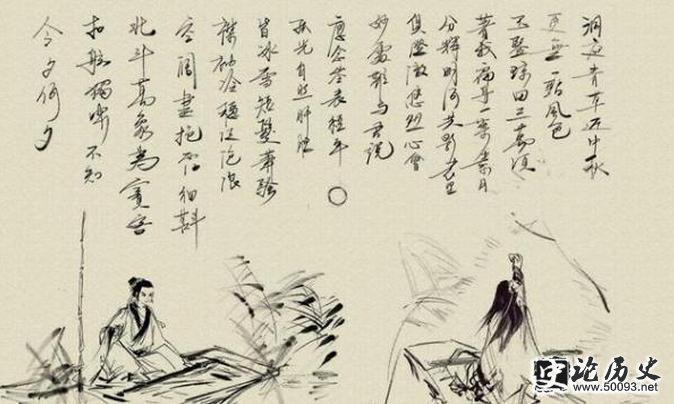 洞庭青草近中秋
更无一點风色
玉鉴琼田三萬顷
著我扁舟一葉素月
分辉明河共影表里
俱澄澈悠然心會
妙處難与君说
應念岭表经年
孤光自照肝胆
皆冰雪短髮萧骚
襟袖冷穩泛沧浪
空阔盡挹西江细斟
北斗萬象为賓客
扣舷獨嘯不知
今夕何夕
论历史
www.50093.net